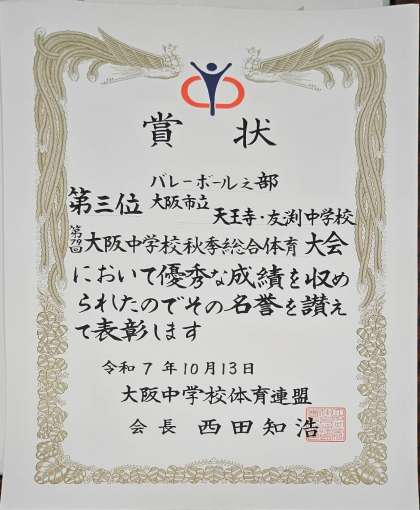 賞状
バレーボール之部
第三位 大阪市立 天王寺・友渕中学校
第79回 大阪中学校秋季総合体育大会
において優秀な成績を収め
られたのでその名誉を讃え
て表彰します
令和7年10月13日
大阪中学校体育連盟
会長 西田知浩